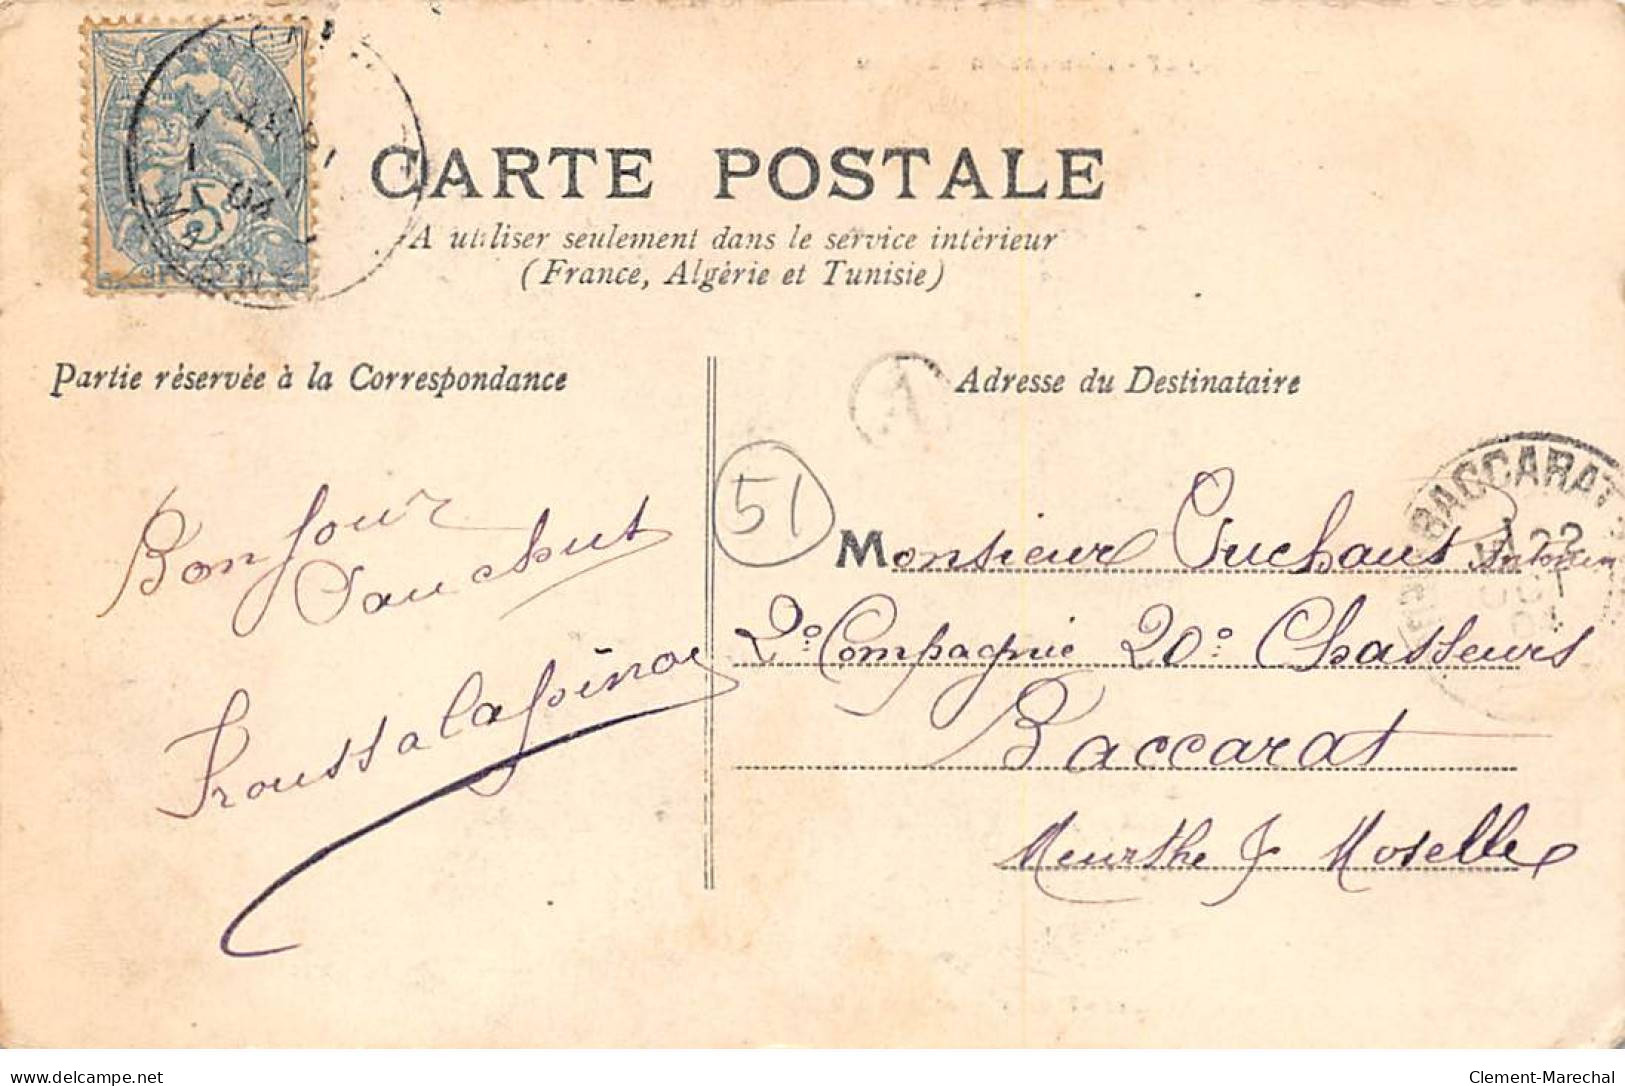 CARTE POSTALE
A utiliser seulement dans le service intérieur
(France, Algérie et Tunisie)
Partie réservée à la Correspondance
Adresse du Destinataire
5
04
MARNE
A
51
BACCARAT
22
Bonjour
Monsieur Cuchaut Antonin
2e Compagnie 20e Chasseurs
Baccarat
Meurthe & Moselle
delcampe.net
Clement-Marechal